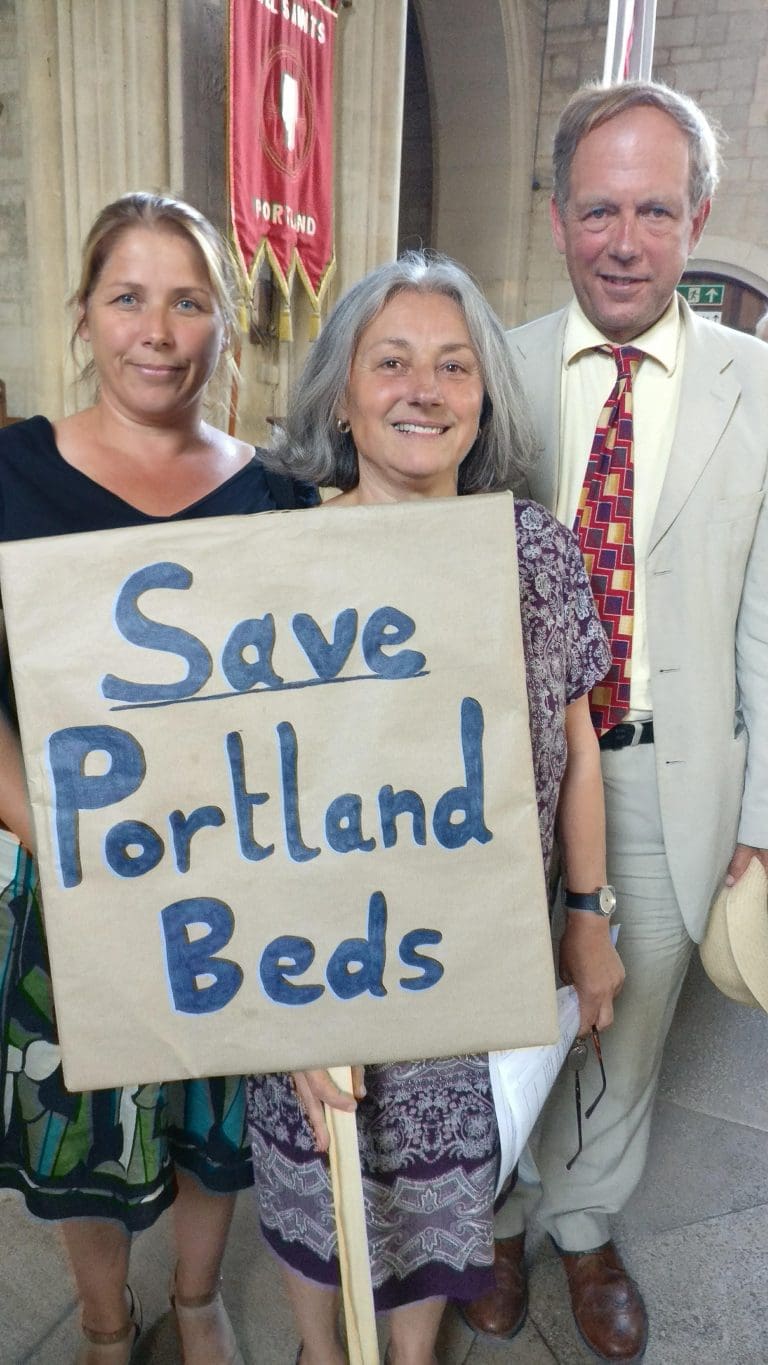 ALL SAINTS
PORTLAND
Save
Portland
Beds